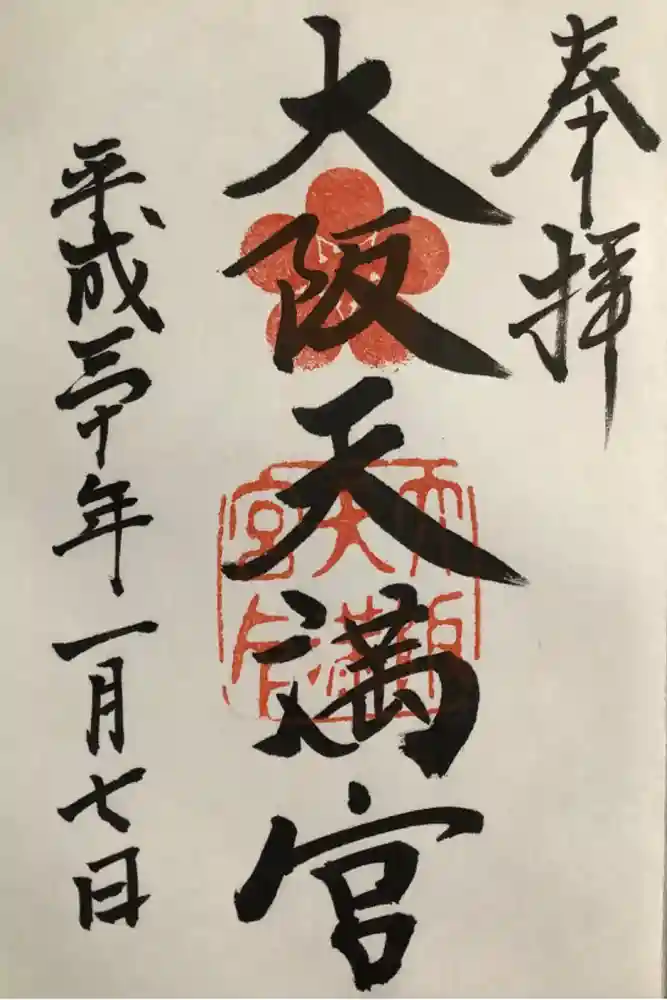 奉拝
大阪天満宮
大阪天満宮印
平成三十年一月七日